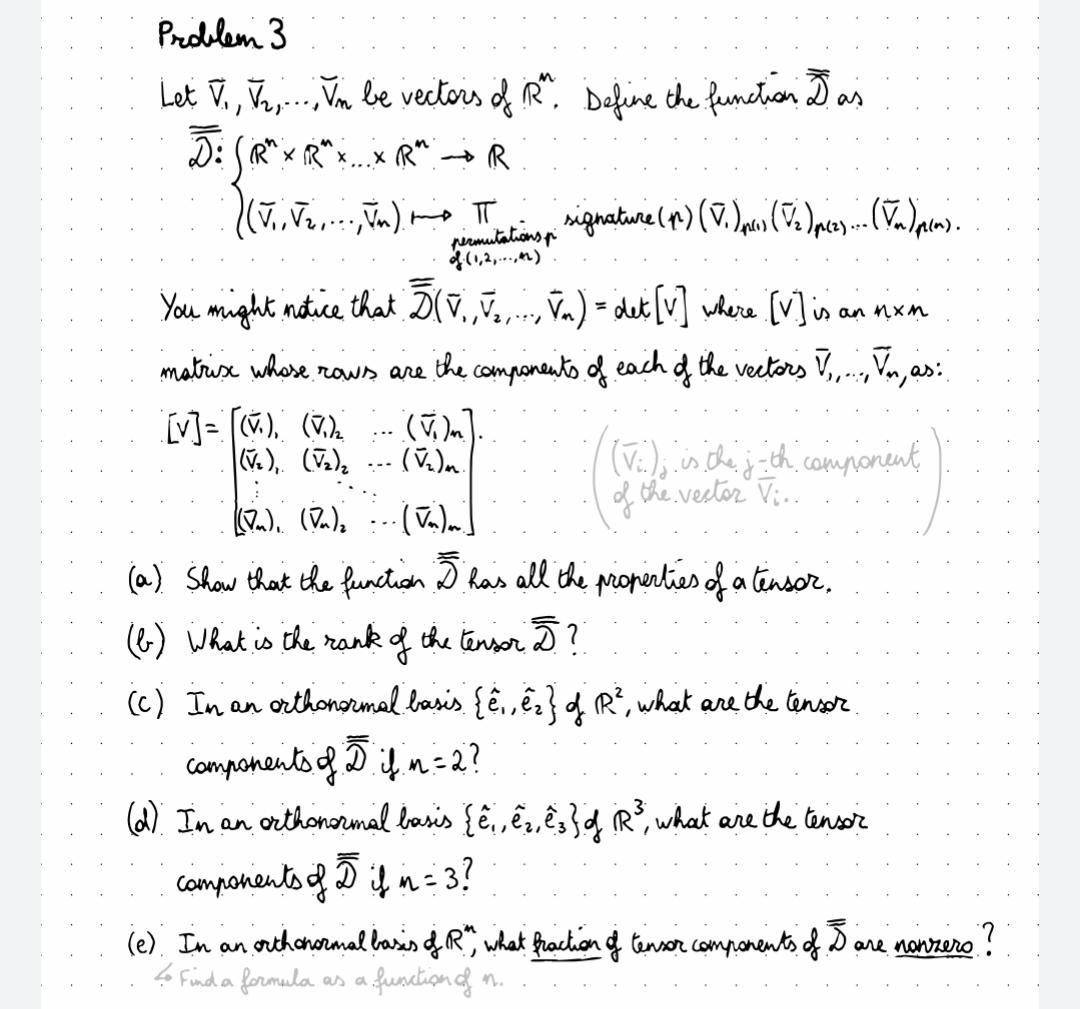 Problem 3
Let V̄₁, V̄₂, ..., V̄ₙ be vectors of ℝⁿ. Define the function D̿ as
D̿: { ℝⁿ × ℝⁿ × ... × ℝⁿ → ℝ
(V̄₁, V̄₂, ..., V̄ₙ) ↦ Π signature(p) (V̄₁)ₚ₍₁₎ (V̄₂)ₚ₍₂₎ ... (V̄ₙ)ₚ₍ₙ₎.
permutations p
of (1,2,...,n)
You might notice that D̿(V̄₁, V̄₂, ..., V̄ₙ) = det[V] where [V] is an n×n
matrix whose rows are the components of each of the vectors V̄₁, ..., V̄ₙ, as:
[V] = [(V̄₁)₁ (V̄₁)₂ ... (V̄₁)ₙ].
(V̄₂)₁ (V̄₂)₂ ... (V̄₂)ₙ
⋮ ⋱
(V̄ₙ)₁ (V̄ₙ)₂ ... (V̄ₙ)ₙ
((V̄ᵢ)ⱼ is the j-th component
of the vector V̄ᵢ.)
(a) Show that the function D̿ has all the properties of a tensor.
(b) What is the rank of the tensor D̿?
(c) In an orthonormal basis {ê₁, ê₂} of ℝ², what are the tensor
components of D̿ if n=2?
(d) In an orthonormal basis {ê₁, ê₂, ê₃} of ℝ³, what are the tensor
components of D̿ if n=3?
(e) In an orthonormal basis of ℝⁿ, what fraction of tensor components of D̿ are nonzero?
↳ Find a formula as a function of n.